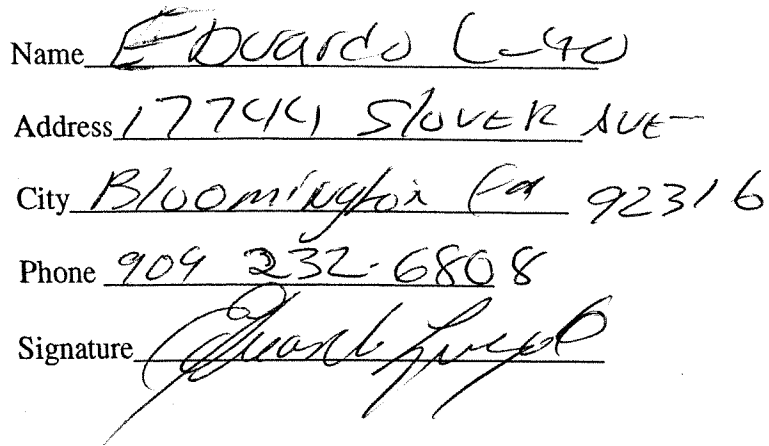 Name Eduardo
Address 17744 Slover Ave
City Bloomington Ca 92316
Phone 909 232-6808
Signature Eduardo